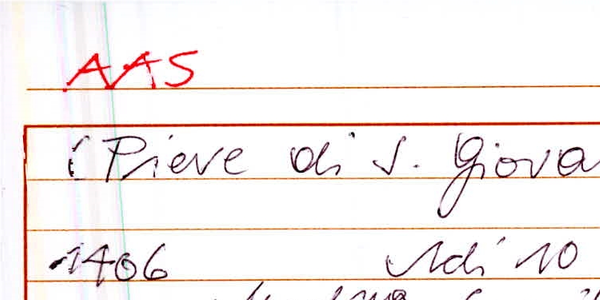 AAS
(Pieve di S. Giova
1406 Adi 10